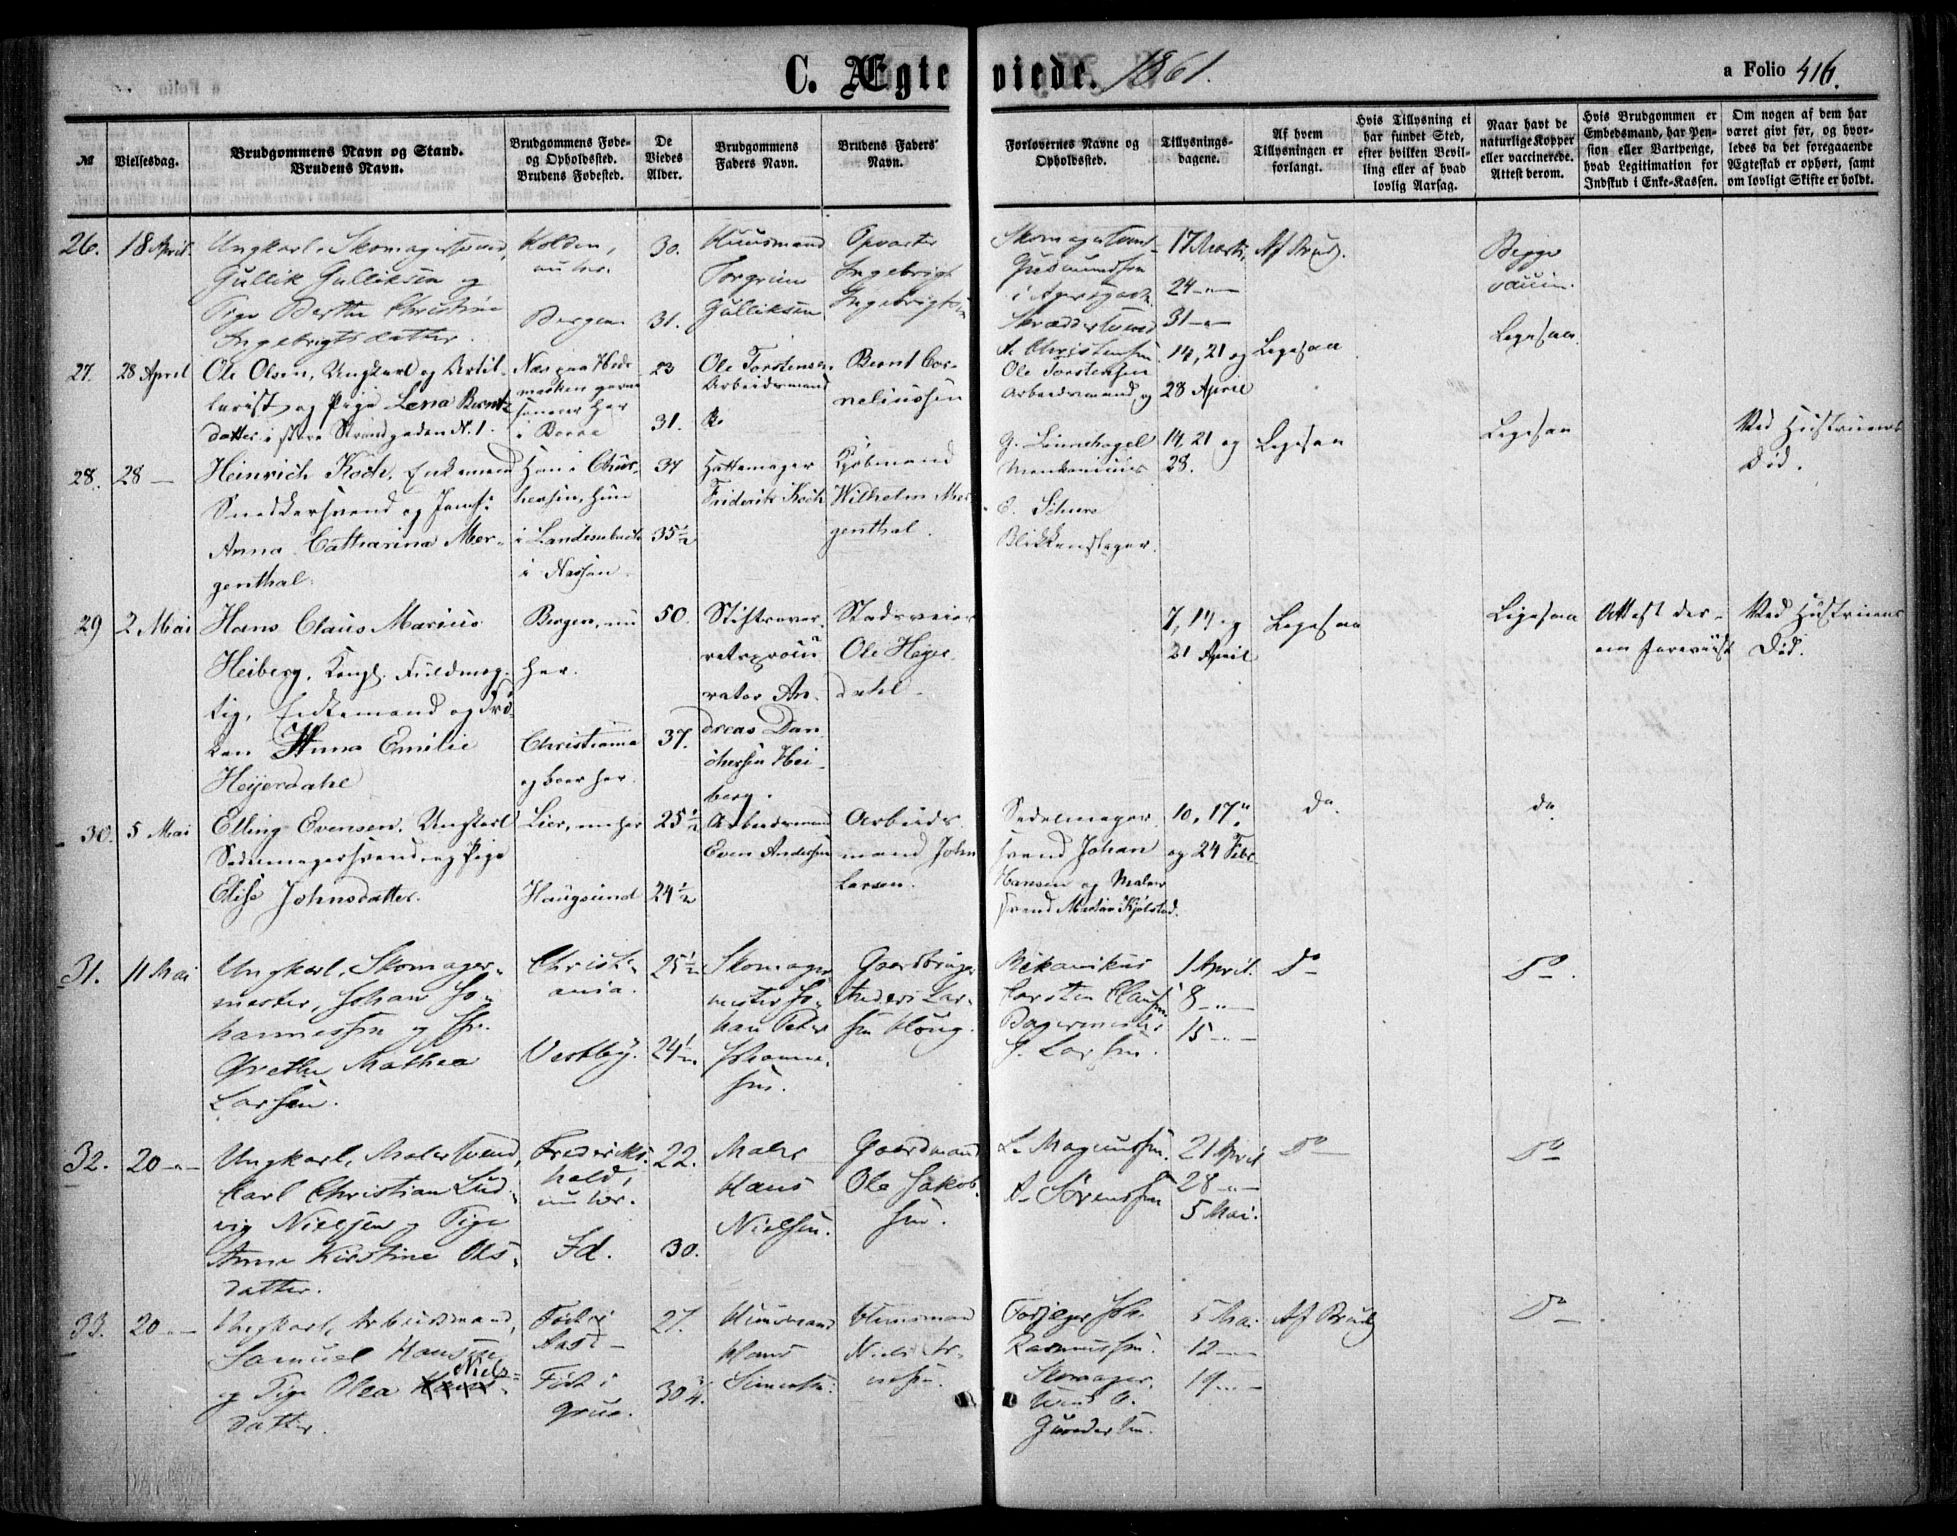 C. Ægteviede. 1861.
a Folio 416.
№
Vielsesdag.
Brudgommens Navn og Stand.
Brudens Navn.
Brudgommens Føde-
og Opholdssted.
Brudens Fødested.
De
Viedes
Alder.
Brudgommens
Faders Navn.
Brudens Faders
Navn.
Forlovernes Navne og
Opholdssted.
Tillysnings-
dagene.
Af hvem
Tillysningen er
forlangt.
Hvis Tillysning ei
har fundet Sted,
efter hvilken Bevil-
ling eller af hvad
lovlig Aarsag.
Naar havt de
naturlige Kopper
eller vaccinerede.
Attest derom.
Hvis Brudgommen er
Embedsmand, har Pen-
sion eller Vartpenge,
hvad Legitimation for
Indskud i Enke-Kassen.
Om nogen af dem har
været givt før, og hvor-
ledes da det foregaaende
Ægteskab er ophørt, samt
om lovligt Skifte er holdt.
26.
18 April.
Ungkarl, Skomagersvend,
Gullik Gulliksen og
Pige Berthe Christine
Ingebrigtsdatter.
Holden,
nu her.
Bergen.
30.
31.
Huusmand
Torgrim
Gulliksen
Opvarter
Ingebrigt
Ingebrigtsen
Skomagersvend
Skræddersvend
A. Christensen
17 Marts,
24 –"–
31 –"–
Af Brudg.
Begge
vaccin.
27.
28 April
Ole Olsen, Ungkarl og Artil-
lerist og Pige Lena Bernts-
datter i store Strandgaden N. 1.
Næs paa Hede-
marken
her
23
31.
Ole Torstensen
Arbeidsmand
Bernt Cor-
neliussen
Ole Torstensen
Arbeidsmand og
14, 21 og
28 April
Ligesaa
Ligesaa.
28.
28 —
Heinrich Koch, Enkemand
Snedkersvend og Jomf:
Anna Catharina Mer-
genthal.
Han i Chur-
hessen, Hun
i
i Nassau.
37
35 ½
Hattemager
Friderik Koch
Kjøbmand
Wilhelm Mer-
genthal.
G. Linnehagel
Mechanicus
E. Schurs
Blikkenslager.
14, 21 og
28.
Ligesaa
Ligesaa
Ved Hustruens
Død.
29
2 Mai
Hans Claus Marius
Heiberg, Kongl. Fuldmæg-
tig, Enkemand og Frø-
ken Anna Emilie
Heyerdahl
Bergen, nu
her.
Christiania
og boer her.
50.
37.
Stiftsover-
retsprocu-
rator An-
dreas Dan-
chersen Hei-
berg.
Stadsveier
Ole Heyer-
dahl.
7, 14 og
21 April
Ligesaa
Ligesaa
Attest der-
om foreviist
Ved Hustruens
Død.
30.
5 Mai
Elling Evensen, Ungkarl
Sadelmagersvend og Pige
Elise Johnsdatter.
Lier, nu her
Haugsund
25 ½
24 ½
Arbeidsmand
Even Andersen
Arbeids-
mand John
Larsen.
Sadelmager-
svend Johan
Hansen og Maler-
svend Martin Kjølstad.
10, 17
og 24 Febr.
do.
do.
31.
11 Mai
Ungkarl, Skomager-
mester, Johan Jo-
hannessen og Pige
Grethe Mathea
Larsen.
Christi-
ania.
Vestby.
25 ½
24 ½
Skomager-
mester Jo-
han Peter
Johannes-
sen.
Gaardbruger
Anders Lar-
sen Houg.
Mekanikus
Carsten Clausen
Bagermester
Larsen.
1 April.
8 –"–
15 –"–
Do
Do.
32.
20 –"–
Ungkarl, Malersvend,
Carl Christian Lud-
vig Nielsen og Pige
Anne Kirstine Ols-
datter.
Frederiks-
hald,
nu her.
Id.
22.
30.
Maler
Hans
Nielsen.
Gaardmand
Ole Jakob-
sen.
L. Magnussen.
A. Sørenssen
21 April
28 –"–
5 Mai.
Do
Do
33.
20 –"–
Ungkarl, Arbeidsmand,
Samuel Hansen
og Pige Olea Niels-
datter.
Født i
Født i
Grue.
27.
30 ¼.
Huusmand
Hans
Simensen.
Huusmand
Niels
Rasmussen.
Skomager-
svend O.
Gundersen.
5 Mai
12 –"–
19 –"–
Af Brudg
Do